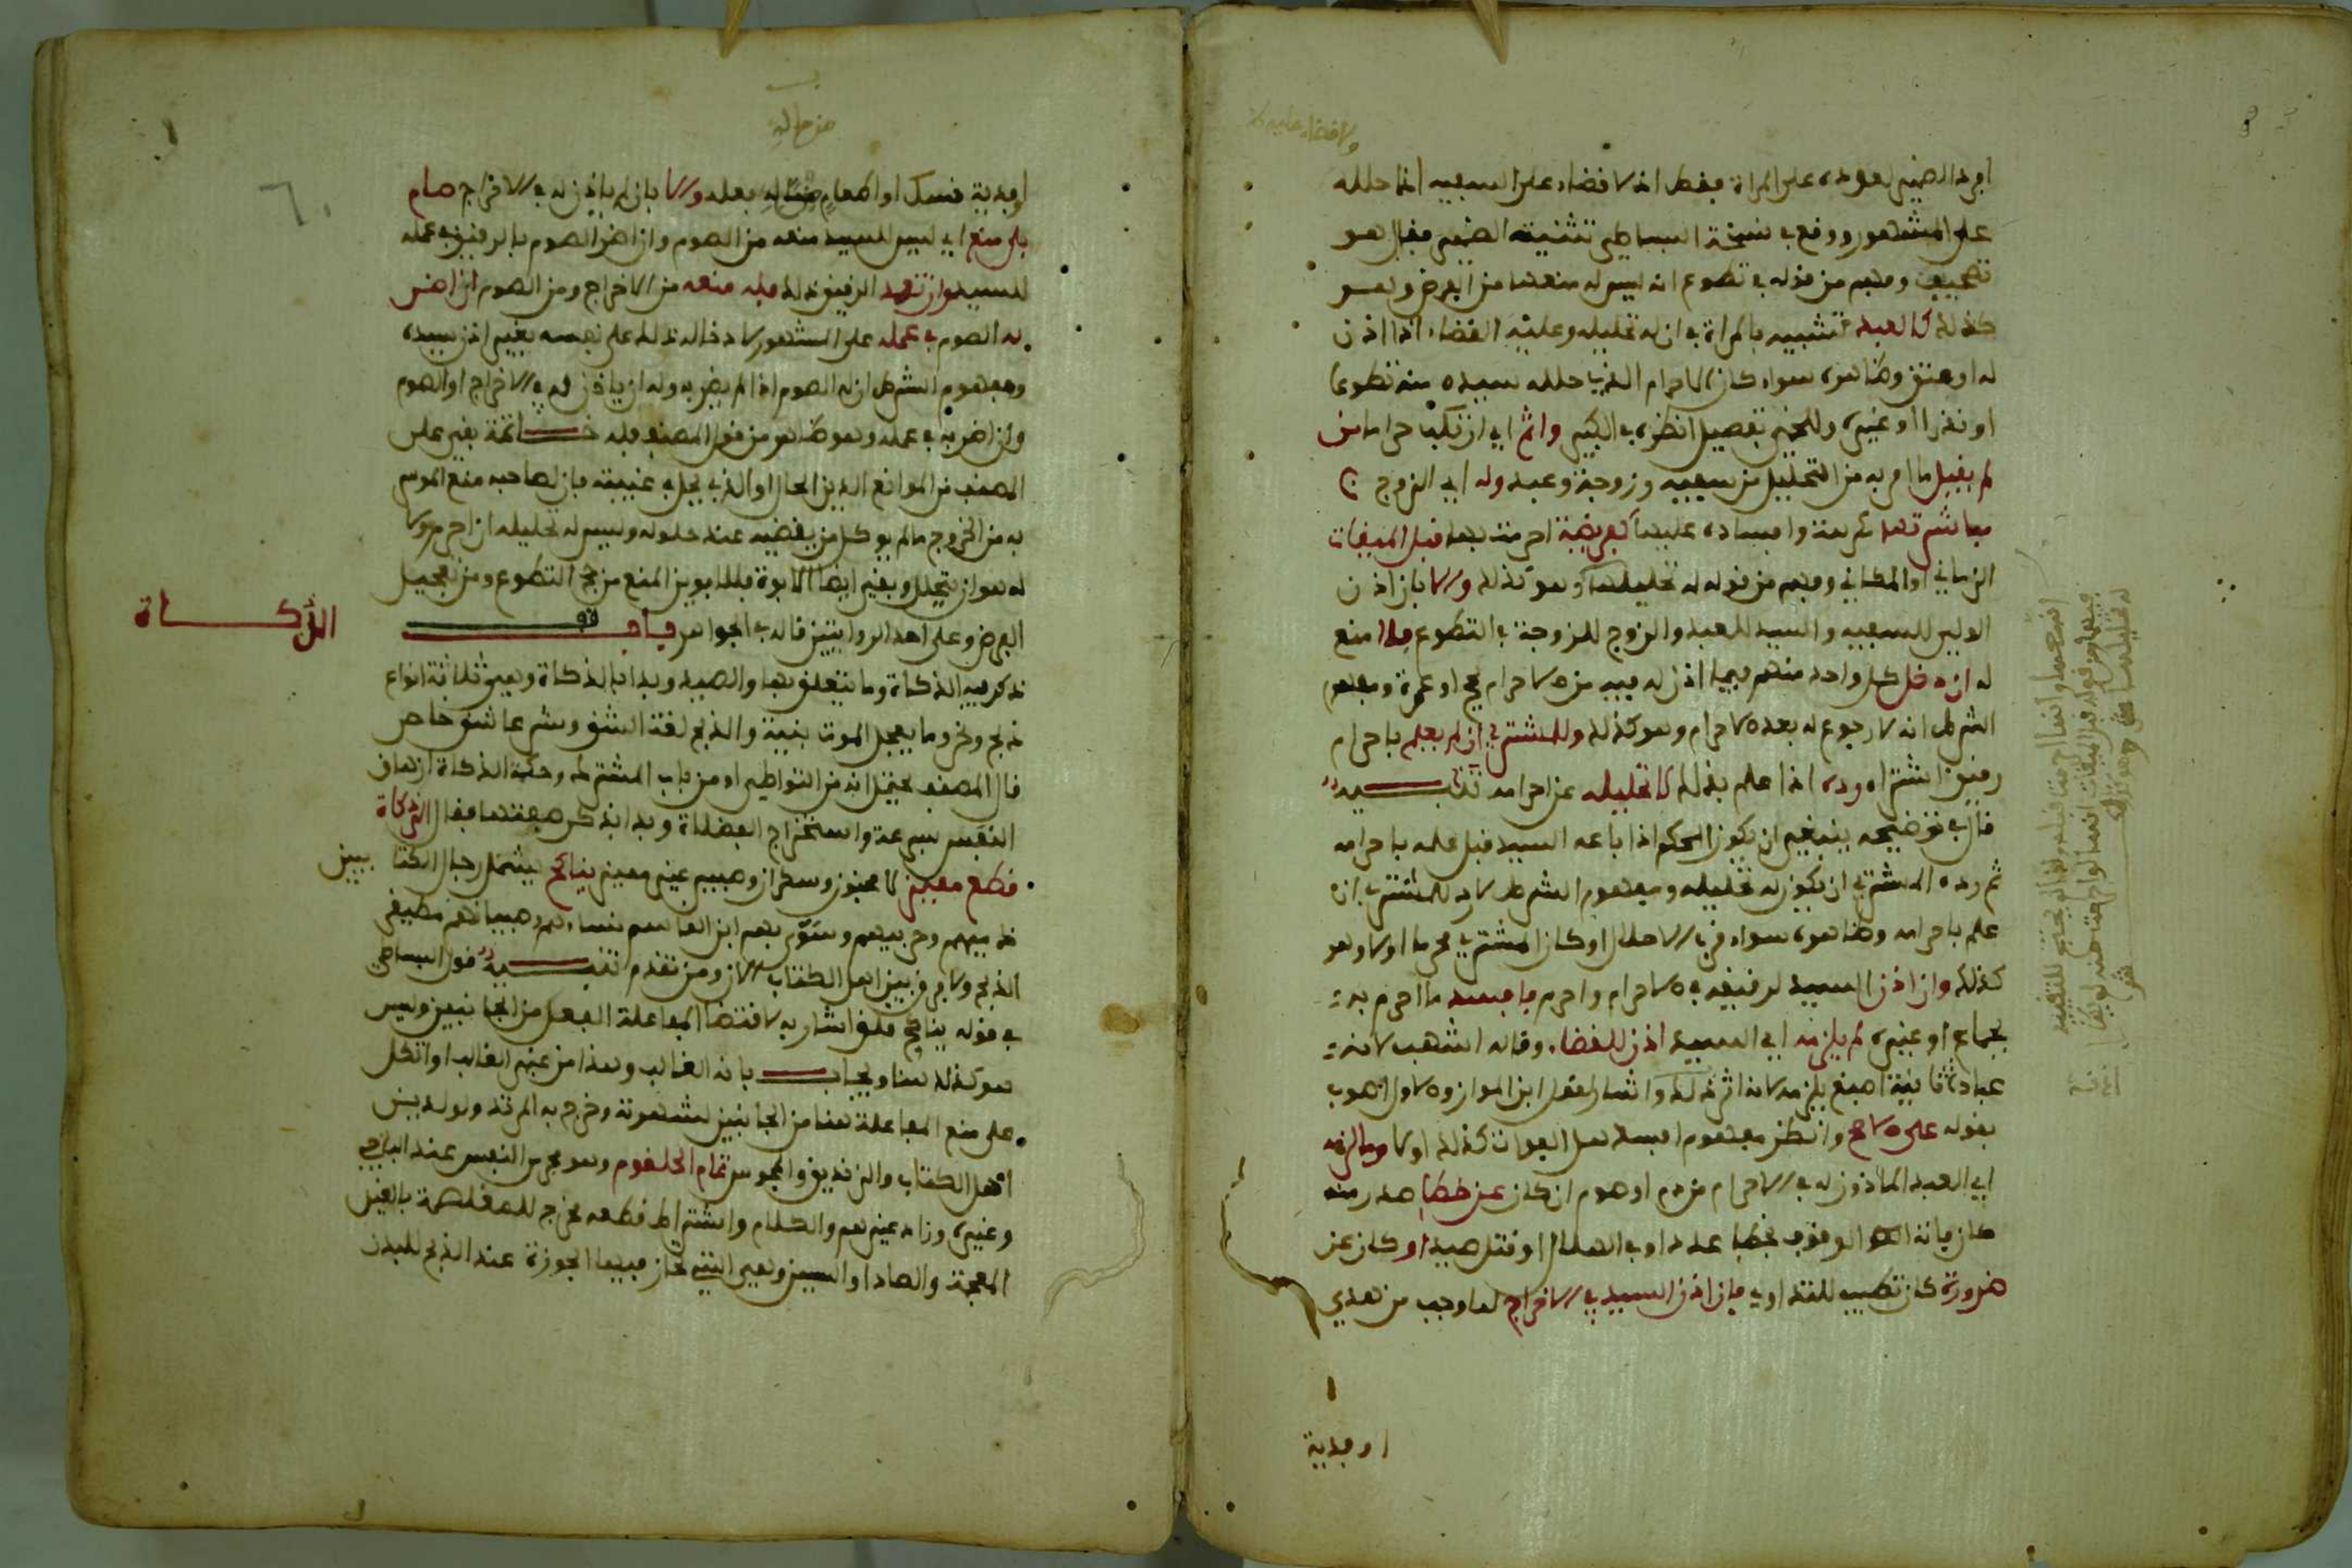 افرد الضمير لعوده على المراة فقط اذ لا قضاء على السفيه اذا حلله
على المشهور ووقع في نسخة البساطي تثنية الضمير فقال هو
تصحيف وفهم من قوله في تطوع انه ليس له منعهما من الفرض وهو
كذلك كالعبد تشبيه بالمراة في ان له تحليله وعليه القضاء اذا اذن
له او عتق وظاهره سواء كان الاحرام الذي حلله سيده منه تطوعا
او نذرا او غيره وللخمي تفصيل انظره في الكبير واثم اي ارتكب حراما من
لم يقبل ما امر به من التحليل من سفيه وزوجة وعبد وله اي الزوج
مباشرتها كرها وافساده عليها كفريضة احرمت بها قبل الميقات
الزماني او المكاني وفهم من قوله له تحليلها وهو كذلك والا بان اذن
الولي للسفيه والسيد للعبد والزوج للزوجة في التطوع فلا منع
له ان دخل كل واحد منهم فيما اذن له فيه من الاحرام بحج او عمرة ومفهوم
الشرط انه لا رجوع له بعد الاحرام وهو كذلك وللمشتري ان لم يعلم باحرام
رقيق اشتراه رده اذا علم بذلك لا تحليله عن احرامه تنبيه
قال في توضيحه ينبغي ان يكون الحكم اذا باعه السيد قبل علمه باحرامه
ثم رده المشتري ان يكون له تحليله ومفهوم الشرط لا رد للمشتري ان
علم باحرامه وظاهره سواء قرب الاحلال او كان المشتري محرما اولا وهو
كذلك وان اذن السيد لرقيقه في الاحرام واحرم فافسد ما احرم به
بجماع او غيره لم يلزمه اي السيد اذن للقضاء وقاله اشهب لانه
عبادة ثانية اصبغ يلزمه لانه اثر ذلك واشار لقول ابن المواز والاول اصوب
بقوله على الاصح وانظر مفهوم افسد هل الفوات كذلك اولا وما لزمه
اي العبد الماذون له في الاحرام من دم او صوم ان كان عن خطا صدر منه
كان فاته الوقوف لخطا عدد او في الهلال او قتل صيدا او كان عن
ضرورة كان تطيب للتداوي فان اذن السيد في الاخراج لما وجب من هدي
او فدية
من ماله
او فدية نسك او اطعام من ماله فعله والا بان لم ياذن له في الاخراج صام
بلا منع اي ليس للسيد منعه من الصوم وان اضر الصوم بالرقيق في عمله
للسيد وان تعمد الرقيق ذلك فله منعه من الاخراج ومن الصوم ان اضر
به الصوم في عمله على المشهور لادخاله ذلك على نفسه بغير اذن سيده
ومفهوم الشرط ان له الصوم اذا لم يضر به وله ان ياذن له في الاخراج او الصوم
وان اضر به في عمله وهو ظاهر من قول المصنف فله خاتمة بقي على
المصنف من الموانع الدين الحال او الذي يحل في غيبته فان لصاحبه منع الموسر
به من الخروج ما لم يوكل من يقضيه عند حلوله وليس له تحليله ان احرم ولا
له هو ان يتحلل وبقي ايضا الابوة فللابوين المنع من حج التطوع ومن تعجيل
الفرض وعلى احد الروايتين قاله في الجواهر باب
الذكاة
ذكر فيه الذكاة وما يتعلق بها والصيد وبدا بالذكاة وهي ثلاثة انواع
ذبح ونحر وما يعجل الموت بنية والذبح لغة الشق وشرعا شق خاص
قال المصنف يحتمل انه من التواطي او من باب المشترك وحكمة الذكاة ازهاق
النفس بسرعة واستخراج الفضلات وبدا بذكر صفتها فقال الذكاة
قطع مميز لا مجنون وسكران وصبي غير مميز يناكح يشمل رجال الكتابيين
ذميهم وحربيهم وسوى بهم ابن القاسم نساءهم وصبيانهم مطيقي
الذبح ولا فرق بين اهل الكتاب الان ومن تقدم تنبيه قول البساطي
في قوله يناكح قلق اشار به لاقتضاء المفاعلة الفعل من الجانبين وليس
هو كذلك هنا ويجاب بانه الغالب وهذا من غير الغالب او اتكل
على منع المفاعلة هنا من الجانبين لشهرته وخرج به المرتد ولو لدين
اهل الكتاب والزنديق والمجوس تمام الحلقوم وهو مجرى النفس عند الباجي
وغيره وزاد غيرهم والكلام واشتراط قطعه مخرج للمغلصمة بالغين
المعجمة والصاد او السين وهي التي تحاز فيها الجوزة عند الذبح للبدن